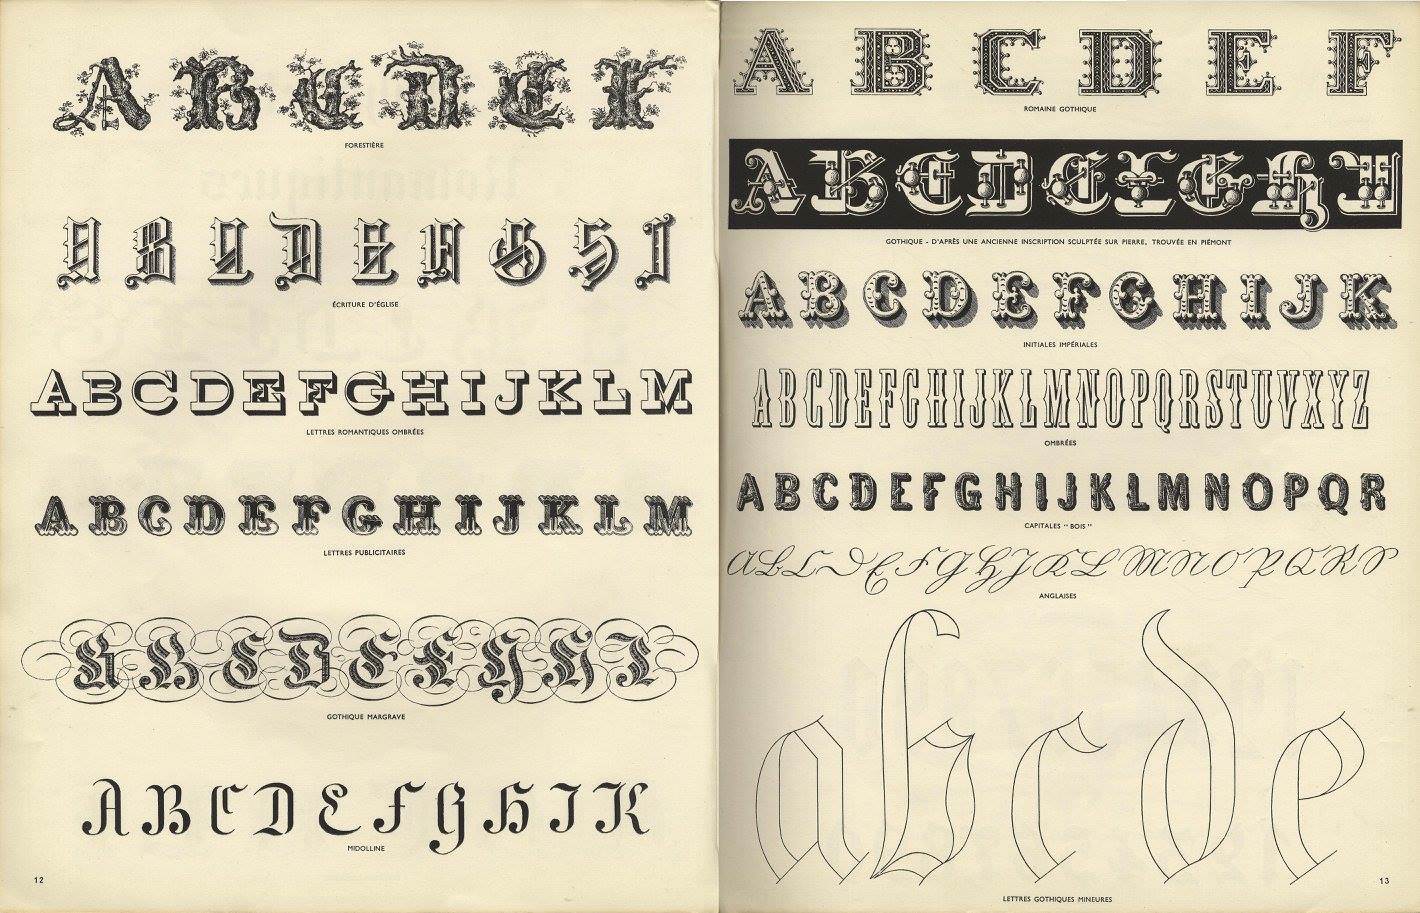 A B C D E F
FORESTIÈRE
A B C D E F G H I
ÉCRITURE D'ÉGLISE
A B C D E F G H I J K L M
LETTRES ROMANTIQUES OMBRÉES
A B C D E F G H I J K L M
LETTRES PUBLICITAIRES
A B C D E F G H I
GOTHIQUE MARGRAVE
A B C D E F G H I K
MIDOLLINE
12
A B C D E F
ROMAINE GOTHIQUE
A B C D E F G H I
GOTHIQUE - D'APRÈS UNE ANCIENNE INSCRIPTION SCULPTÉE SUR PIERRE, TROUVÉE EN PIÉMONT
A B C D E F G H I J K
INITIALES IMPÉRIALES
A B C D E F G H I J K L M N O P Q R S T U V X Y Z
OMBRÉES
A B C D E F G H I J K L M N O P Q R
CAPITALES " BOIS "
A B C D E F G H J K L M N O P Q R S
ANGLAISES
a b c d e
LETTRES GOTHIQUES MINEURES
13